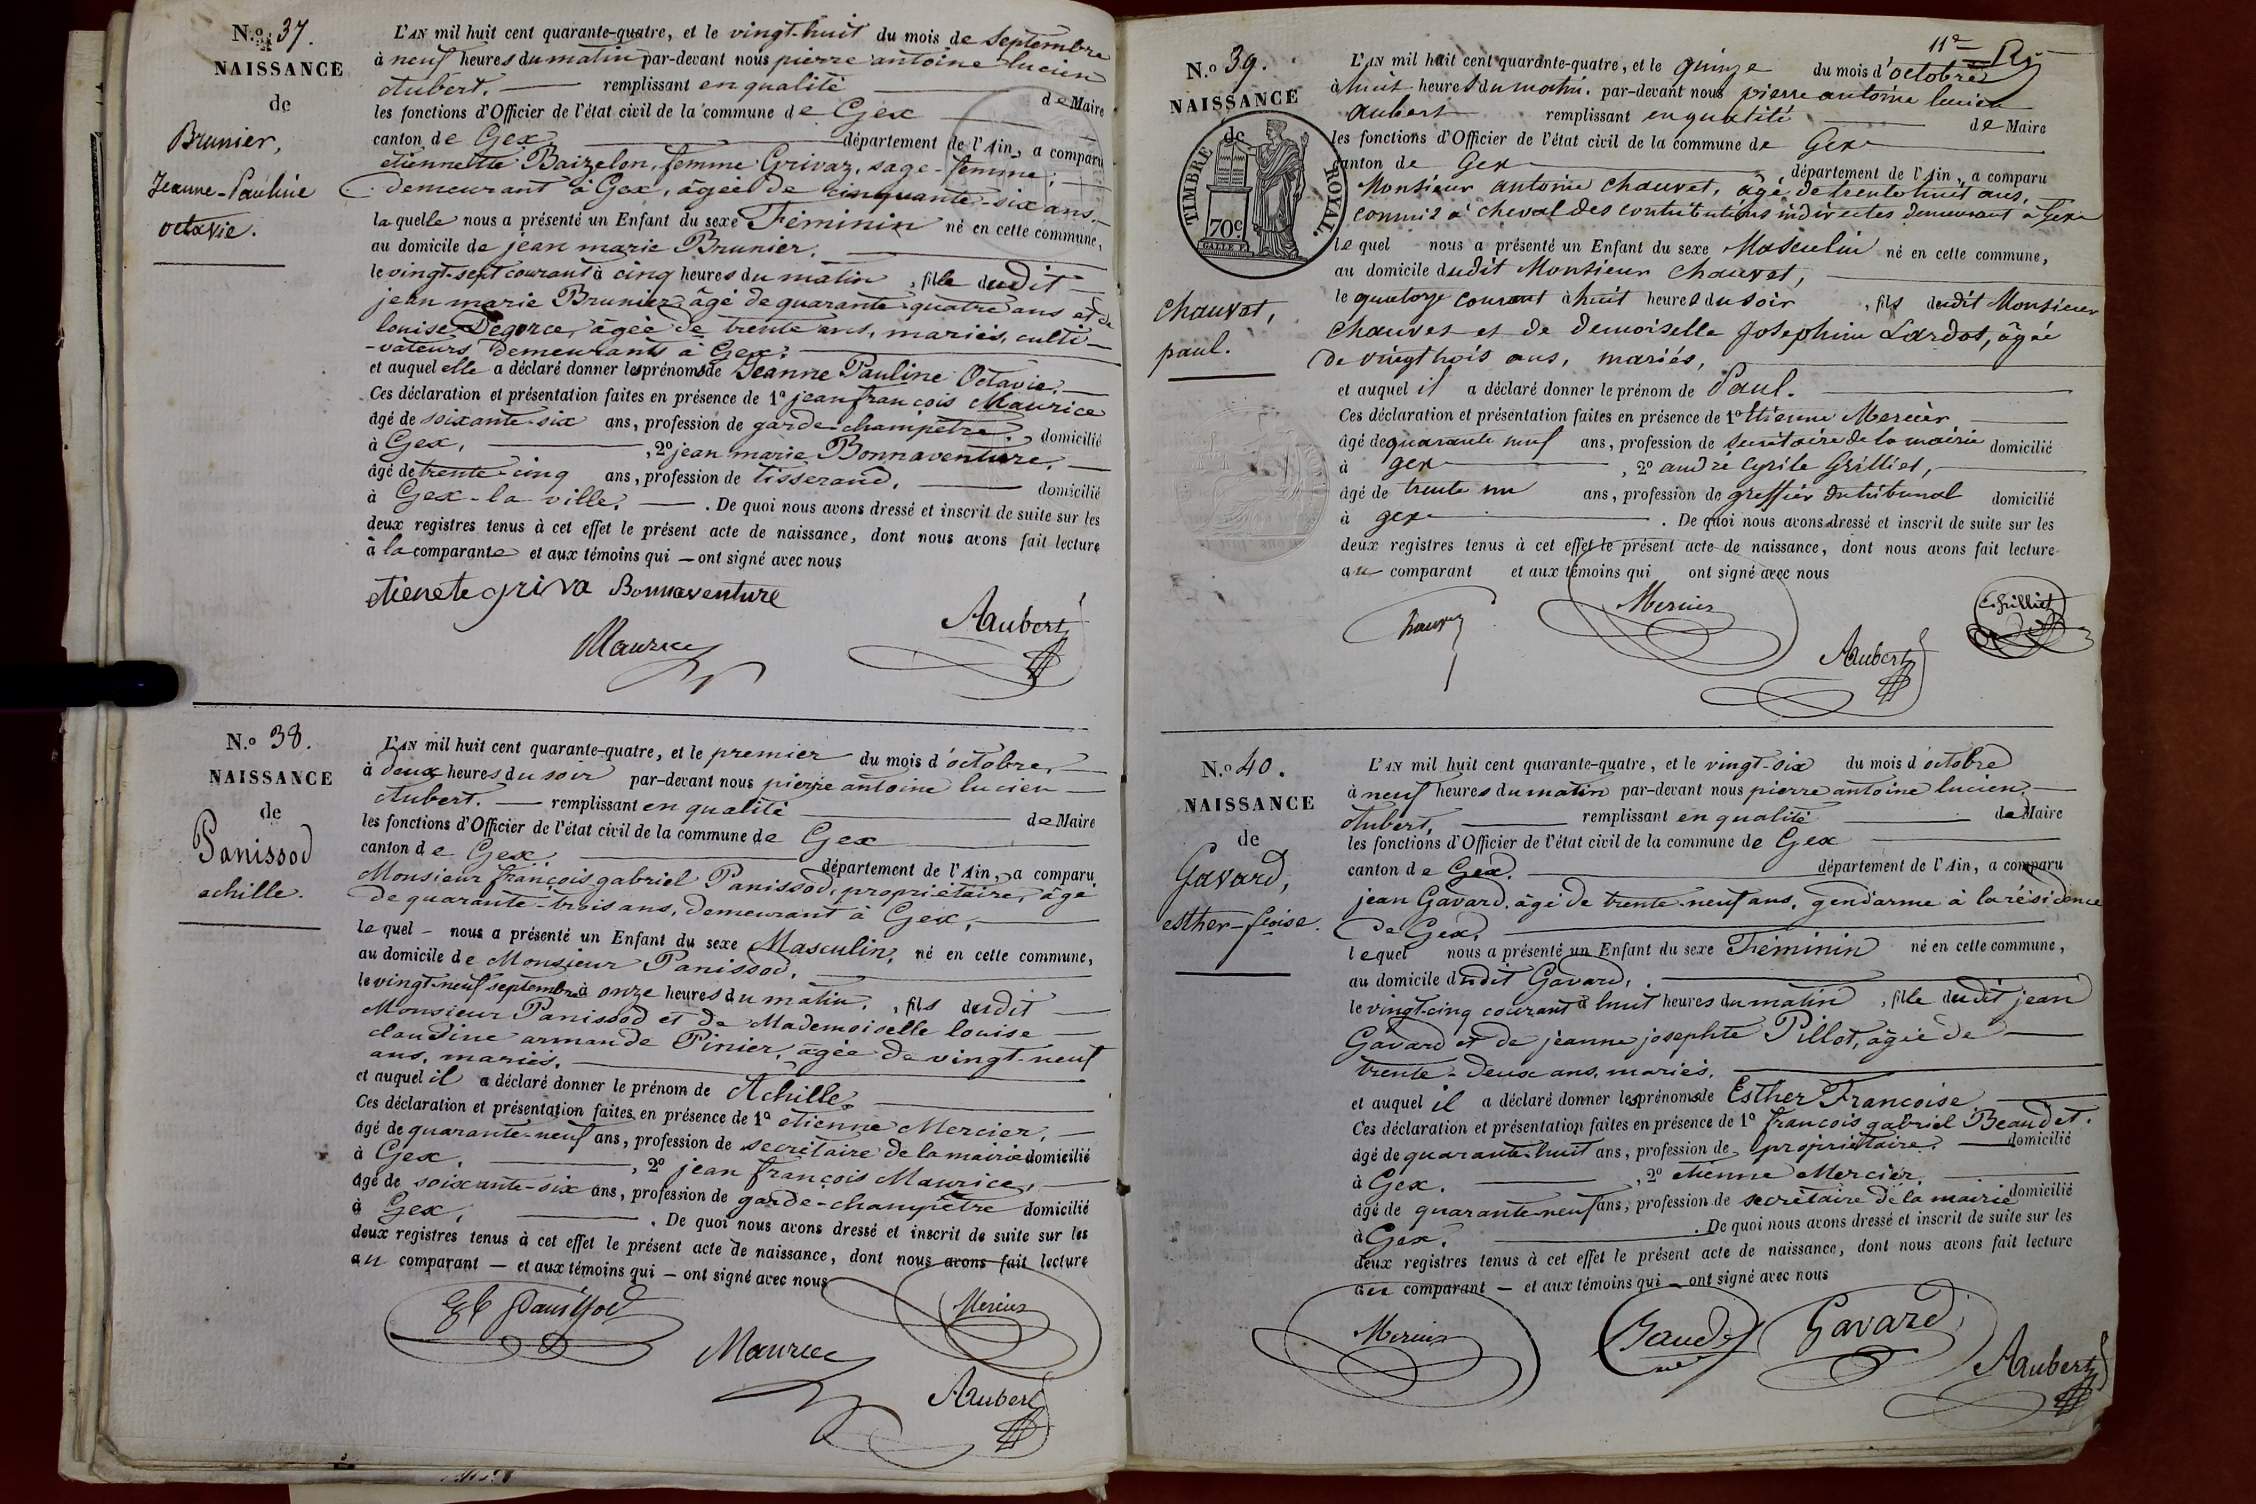 N.º 37.
NAISSANCE
de
Brunier,
Jeanne-Pauline
octavie.
L'AN mil huit cent quarante-quatre, et le vingt-huit du mois de Septembre
à neuf heures du matin par-devant nous pierre antoine lucien
Aubert. remplissant en qualité de Maire
les fonctions d'Officier de l'état civil de la commune de Gex
canton de Gex département de l'Ain, a comparu
etiennette Baizelon, femme Grivaz, sage-femme,
demeurant à Gex, âgée de cinquante-six ans.
la quelle nous a présenté un Enfant du sexe Féminin né en cette commune,
au domicile de jean marie Brunier.
le vingt-sept courant à cinq heures du matin, fille dudit
jean marie Brunier, âgé de quarante-quatre ans et de
louise Degorce, âgée de trente ans, mariés, culti-
-vateurs demeurants à Gex,
et auquel elle a déclaré donner les prénoms de Jeanne Pauline Octavie.
Ces déclaration et présentation faites en présence de 1º jean françois Maurice
âgé de soixante-six ans, profession de garde-champêtre, domicilié
à Gex, , 2º jean marie Bonnaventure,
âgé de trente-cinq ans, profession de tisserand, domicilié
à Gex-la-ville. . De quoi nous avons dressé et inscrit de suite sur les
deux registres tenus à cet effet le présent acte de naissance, dont nous avons fait lecture
à la comparante et aux témoins qui — ont signé avec nous
etienete griva Bonnaventure
Maurice
Aubert
N.º 38.
NAISSANCE
de
Panissod
achille.
L'AN mil huit cent quarante-quatre, et le premier du mois d'octobre,
à deux heures du soir par-devant nous pierre antoine lucien
Aubert. remplissant en qualité de Maire
les fonctions d'Officier de l'état civil de la commune de Gex
canton de Gex. département de l'Ain, a comparu
Monsieur françois gabriel Panissod, propriétaire, âgé
de quarante-trois ans, demeurant à Gex,
le quel - nous a présenté un Enfant du sexe Masculin, né en cette commune,
au domicile de Monsieur Panissod,
le vingt-neuf septembre à onze heures du matin, fils dudit
Monsieur Panissod et de Mademoiselle louise
claudine armande Pinier, âgée de vingt-neuf
ans, mariés.
et auquel il a déclaré donner le prénom de Achille,
Ces déclaration et présentation faites en présence de 1º etienne Mercier,
âgé de quarante-neuf ans, profession de secrétaire de la mairie domicilié
à Gex, , 2º jean françois Maurice,
âgé de soixante-six ans, profession de garde-champêtre domicilié
à Gex, . De quoi nous avons dressé et inscrit de suite sur les
deux registres tenus à cet effet le présent acte de naissance, dont nous avons fait lecture
au comparant — et aux témoins qui — ont signé avec nous
Panissod
Mercier
Maurice
Aubert
11e
N.º 39.
NAISSANCE
de
TIMBRE ROYAL.
70c
chauvet,
paul.
L'AN mil huit cent quarante-quatre, et le quinze du mois d'octobre
à huit heures du matin. par-devant nous pierre antoine lucien
aubert remplissant en qualité de Maire
les fonctions d'Officier de l'état civil de la commune de Gex
canton de Gex département de l'Ain, a comparu
Monsieur antoine chauvet, âgé de trente huit ans,
commis à cheval des contributions indirectes demeurant à Gex
le quel nous a présenté un Enfant du sexe Masculin né en cette commune,
au domicile dudit Monsieur chauvet,
le quatorze courant à huit heures du soir, fils dudit Monsieur
chauvet et de demoiselle Josephine Lardot, âgée
de vingt trois ans, mariés,
et auquel il a déclaré donner le prénom de Paul.
Ces déclaration et présentation faites en présence de 1º Etienne Mercier
âgé de quarante neuf ans, profession de secrétaire de la mairie domicilié
à gex , 2º andré Cyrile Grilliet,
âgé de trente un ans, profession de greffier du tribunal domicilié
à gex . De quoi nous avons dressé et inscrit de suite sur les
deux registres tenus à cet effet le présent acte de naissance, dont nous avons fait lecture
au comparant et aux témoins qui ont signé avec nous
Mercier
Aubert
N.º 40.
NAISSANCE
de
Gavard,
esther-fçoise.
L'AN mil huit cent quarante-quatre, et le vingt-six du mois d'octobre
à neuf heures du matin par-devant nous pierre antoine lucien
Aubert, remplissant en qualité de Maire
les fonctions d'Officier de l'état civil de la commune de Gex
canton de Gex. département de l'Ain, a comparu
jean Gavard, âgé de trente-neuf ans, gendarme à la résidence
de Gex,
lequel nous a présenté un Enfant du sexe Féminin né en cette commune,
au domicile dudit Gavard,
le vingt-cinq courant à huit heures du matin, fille dudit jean
Gavard et de jeanne josephte Pillot, âgée de
trente-deux ans, mariés.
et auquel il a déclaré donner les prénoms de Esther Francoise
Ces déclaration et présentation faites en présence de 1º françois gabriel Beaudet.
âgé de quarante-huit ans, profession de propriétaire. domicilié
à Gex. , 2º etienne Mercier,
âgé de quarante-neuf ans, profession de secrétaire de la mairie domicilié
à Gex. . De quoi nous avons dressé et inscrit de suite sur les
deux registres tenus à cet effet le présent acte de naissance, dont nous avons fait lecture
au comparant — et aux témoins qui — ont signé avec nous
Mercier
Gavard
Aubert